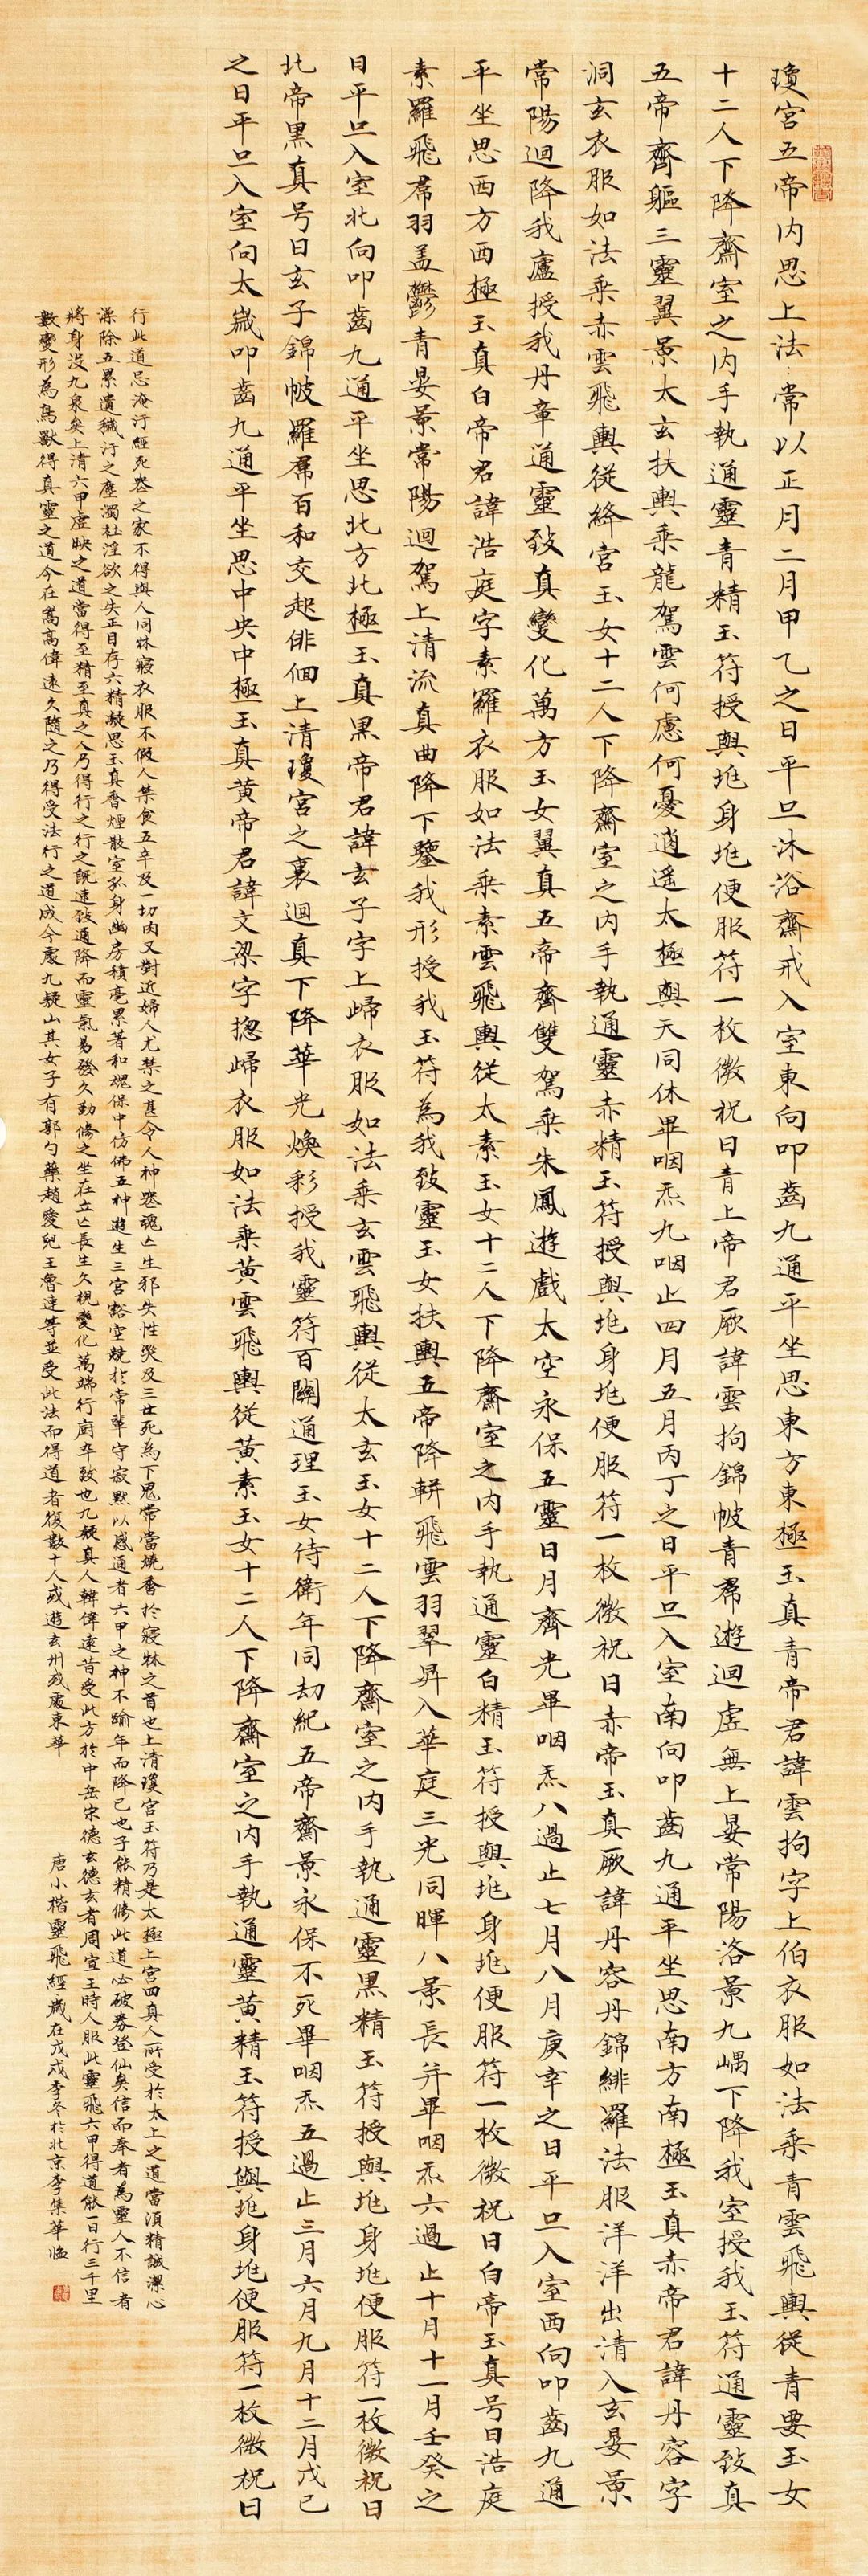 瓊宮五帝內思上法常以正月二月甲乙之日平旦沐浴齋戒入室東向叩齒九通平坐思東方東極玉真青帝君諱雲拘字上伯衣服如法乘青雲飛輿從青要玉女
十二人下降齋室之內手執通靈青精玉符授與兆身兆便服符一枚微祝曰青上帝君厥諱雲拘錦帔青帬遊迴虛無上晏常陽洛景九嵎下降我室授我玉符通靈致真
五帝齊軀三靈翼景太玄扶輿乘龍駕雲何慮何憂逍遙太極與天同休畢咽炁九咽止四月五月丙丁之日平旦入室南向叩齒九通平坐思南方南極玉真赤帝君諱丹容字
洞玄衣服如法乘赤雲飛輿從絳宮玉女十二人下降齋室之內手執通靈赤精玉符授與兆身兆便服符一枚微祝曰赤帝玉真厥諱丹容丹錦緋羅法服洋洋出清入玄晏景
常陽迴降我廬授我丹章通靈致真變化萬方玉女翼真五帝齊雙駕乘朱鳳遊戲太空永保五靈日月齊光畢咽炁八過止七月八月庚辛之日平旦入室西向叩齒九通
平坐思西方西極玉真白帝君諱浩庭字素羅衣服如法乘素雲飛輿從太素玉女十二人下降齋室之內手執通靈白精玉符授與兆身兆便服符一枚微祝曰白帝玉真号曰浩庭
素羅飛帬羽盖鬱青晏景常陽迴駕上清流真曲降下鑒我形授我玉符為我致靈玉女扶輿五帝降軿飛雲羽翠昇入華庭三光同暉八景長并畢咽炁六過止十月十一月壬癸之
日平旦入室北向叩齒九通平坐思北方北極玉真黑帝君諱玄子字上歸衣服如法乘玄雲飛輿從太玄玉女十二人下降齋室之內手執通靈黑精玉符授與兆身兆便服符一枚微祝曰
北帝黑真号曰玄子錦帔羅帬百和交起俳佪上清瓊宮之裏迴真下降華光煥彩授我靈符百關通理玉女侍衛年同劫紀五帝齋景永保不死畢咽炁五過止三月六月九月十二月戊己
之日平旦入室向太歲叩齒九通平坐思中央中極玉真黃帝君諱文梁字揔歸衣服如法乘黃雲飛輿從黃素玉女十二人下降齋室之內手執通靈黃精玉符授與兆身兆便服符一枚微祝曰
行此道忌淹汙經死喪之家不得與人同牀寢衣服不假人禁食五辛及一切肉又對近婦人尤禁之甚令人神喪魂亡生邪失性災及三世死為下鬼常當燒香於寢牀之首也上清瓊宮玉符乃是太極上宮四真人所受於太上之道當須精誠潔心
澡除五累遺穢汙之塵濁杜淫欲之失正目存六精凝思玉真香煙散室孤身幽房積毫累著和魂保中仿佛五神遊生三宮豁空競於常輩守寂默以感通者六甲之神不踰年而降己也子能精修此道必破券登仙矣信而奉者為靈人不信者
將身沒九泉矣上清六甲虛映之道當得至精至真之人乃得行之行之既速致通降而靈氣易發久勤修之坐在立亡長生久視變化萬端行廚卒致也九疑真人韓偉遠昔受此方於中岳宋德玄德玄者周宣王時人服此靈飛六甲得道能一日行三千里
數變形為鳥獸得真靈之道今在嵩高偉遠久隨之乃得受法行之道成今處九疑山其女子有郭勺藥趙愛兒王魯連等並受此法而得道者復數十人或遊玄州或處東華 唐小楷靈飛經歲在戊戌季冬於北京李集華臨